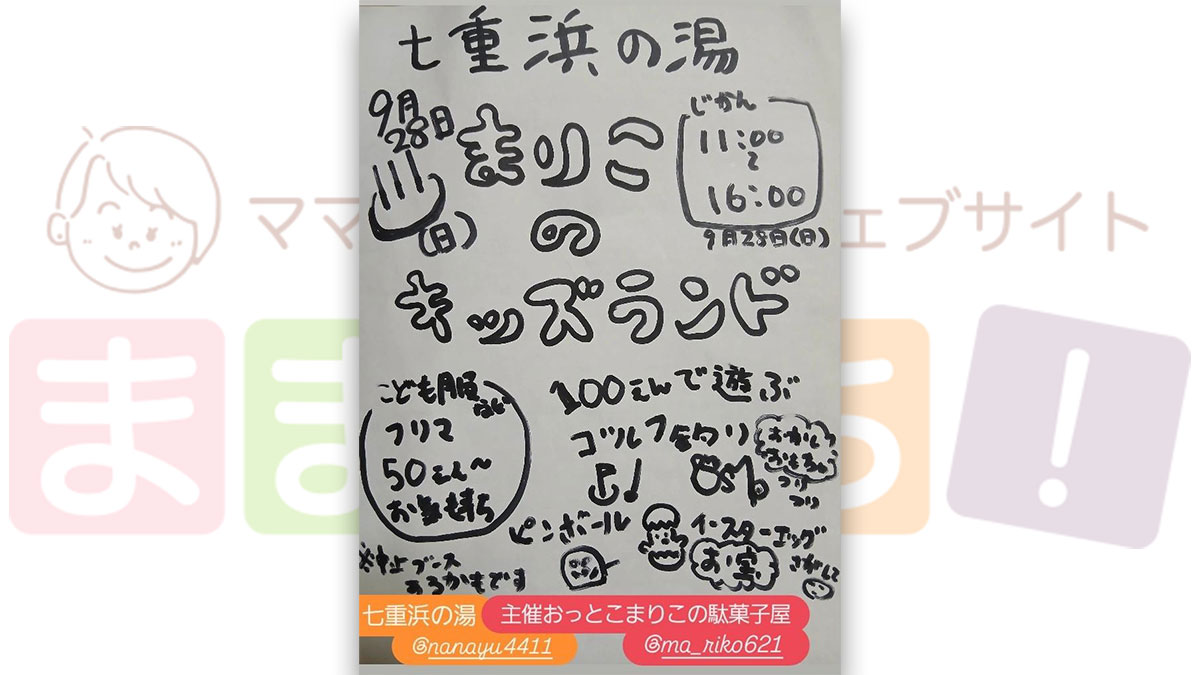 七重浜の湯
9月
28日
(日)
まりこ
の
キッズランド
じかん
11:00
〜
16:00
9月28日(日)
こども服
など
フリマ
50えん〜
お気持ち
100えんで遊ぶ
ゴルフ 釣り
おかし
おもちゃ
つり
つり
ピンボール
イースターエッグ
お宝
さがして
※中止ブース
あるかもです
七重浜の湯
@nanayu4411
主催おっとこまりこの駄菓子屋
@ma_riko621
ママ
ェブサイト
まま
ち!